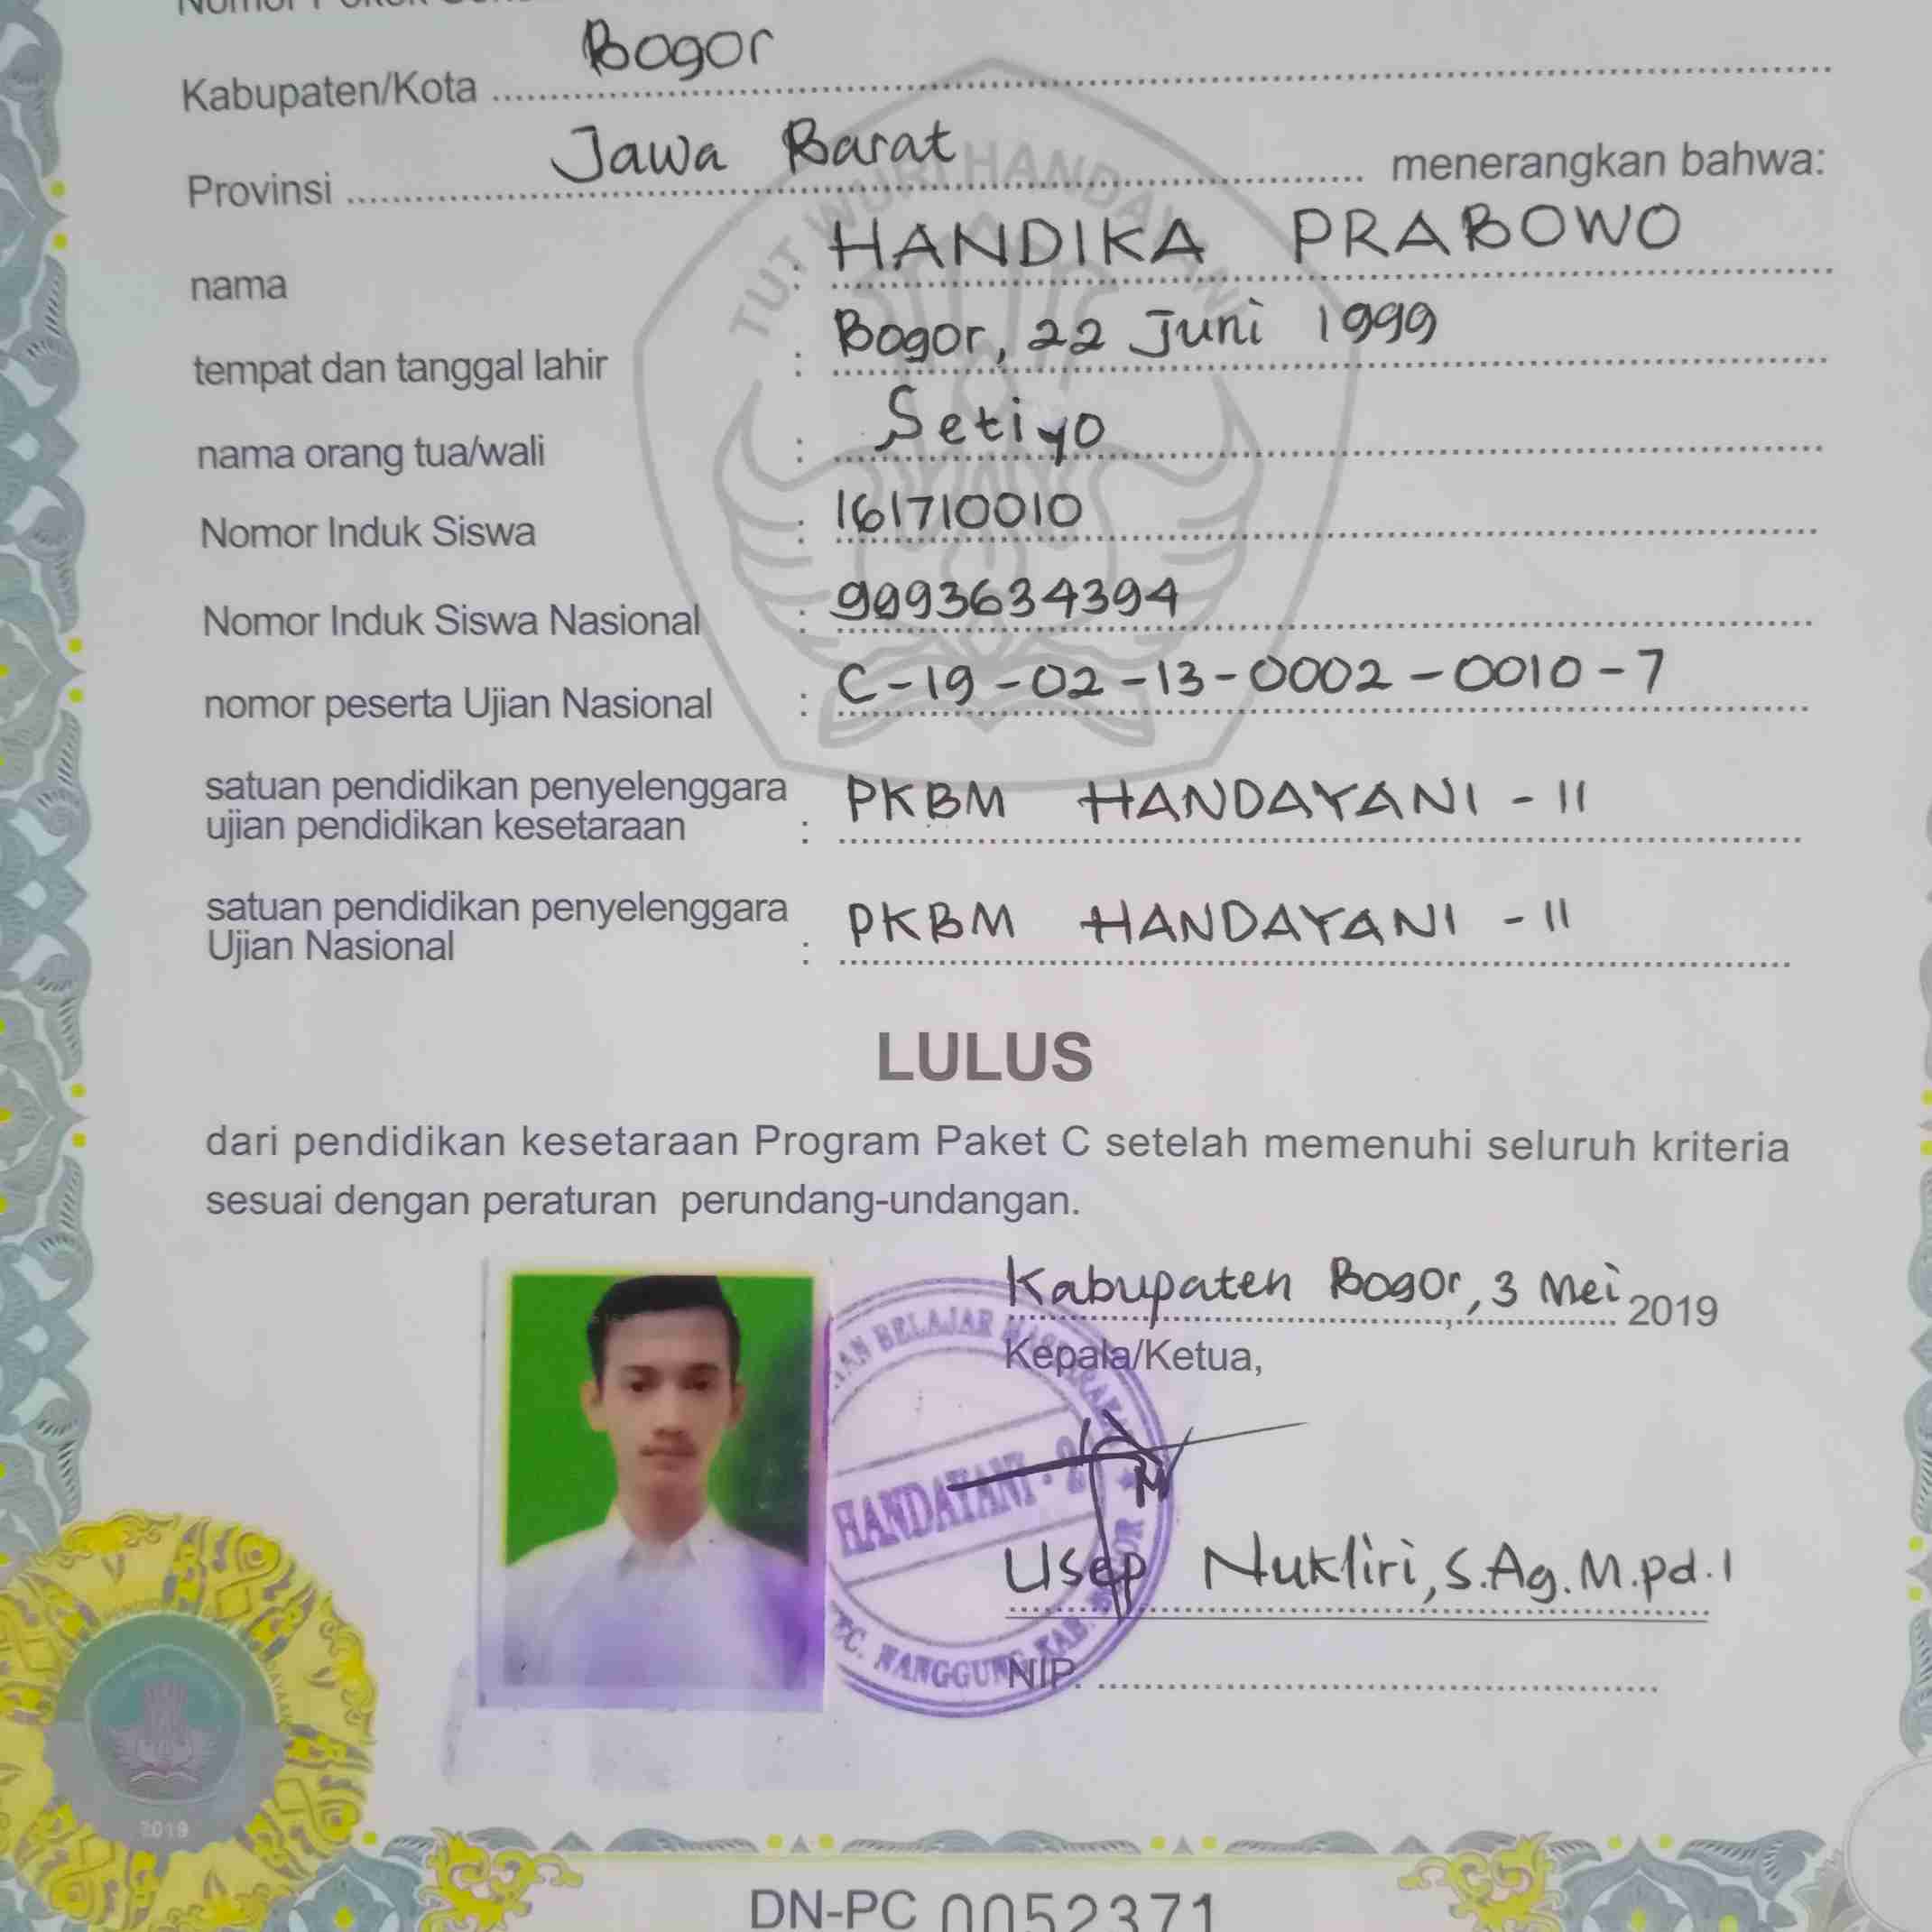 Kabupaten/Kota Bogor
Provinsi Jawa Barat menerangkan bahwa:
nama : HANDIKA PRABOWO
tempat dan tanggal lahir : Bogor, 22 Juni 1999
nama orang tua/wali : Setiyo
Nomor Induk Siswa : 161710010
Nomor Induk Siswa Nasional : 9993634394
nomor peserta Ujian Nasional : C-19-02-13-0002-0010-7
satuan pendidikan penyelenggara
ujian pendidikan kesetaraan : PKBM HANDAYANI - II
satuan pendidikan penyelenggara
Ujian Nasional : PKBM HANDAYANI - II
TUT WURI HANDAYANI
LULUS
dari pendidikan kesetaraan Program Paket C setelah memenuhi seluruh kriteria
sesuai dengan peraturan perundang-undangan.
Kabupaten Bogor, 3 Mei 2019
Kepala/Ketua,
BELAJAR
HANDAYANI - 2
Usep Nukliri, S.Ag.M.pd.I
NANGGUNG KAB.
NIP.
2019
DN-PC 0052371